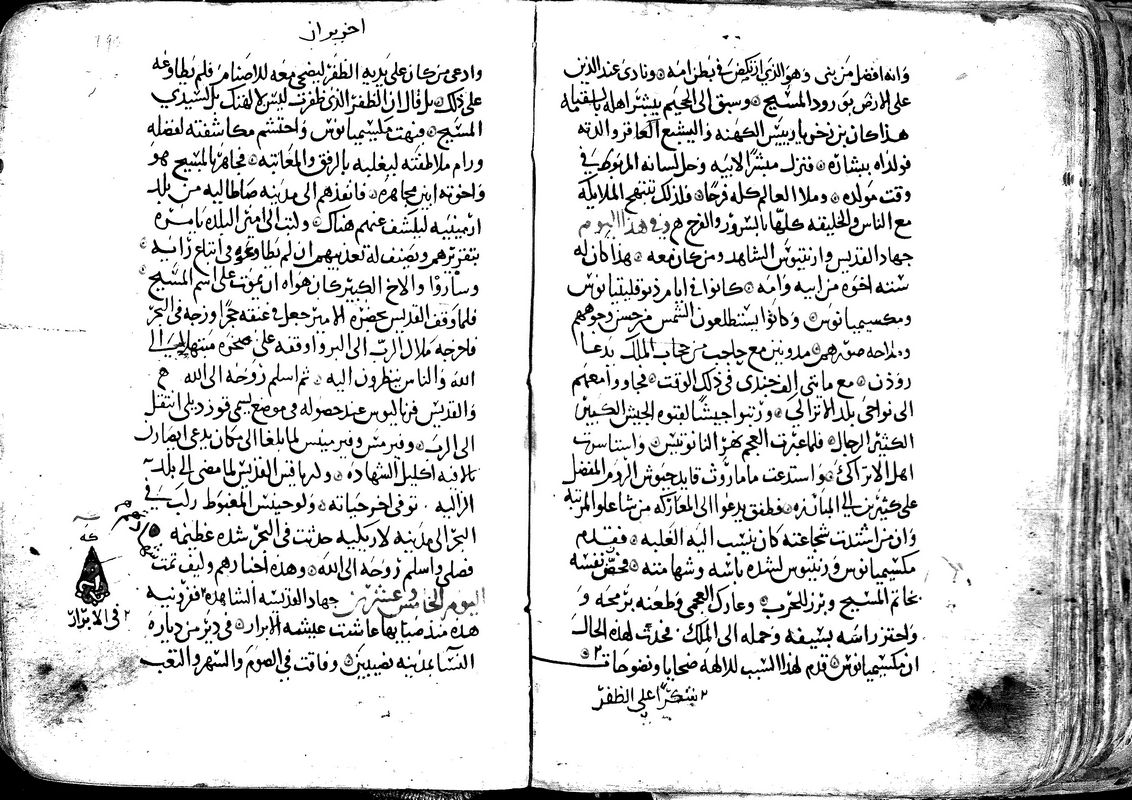 وانه افضل من نبى وهو الذي ارتكض في بطن امه ونادى عند الذين
على الارض بورود المسيح وسبق الى الجحيم يبشر اهله بالسقياه
هذا كان بن زخريا رييس الكهنه واليشبع العاقر والدته
فولداه ببشاره فنزل مبشرًا لابيه وحل لسانه المربوط في
وقت مولده وملا العالم كله فرحًا فلذلك تبتهج الملايكه
مع الناس والخليقه كلها بالسرور والفرح وفي هذا اليوم
جهاد القديس وارنتيوس الشاهد ومن كان معه هذا كان له
سته اخوه من ابيه وامه كانوا في ايام ذيوقليتيانوس
ومكسيميانوس وكانوا يستطلعون الشمس من حسن وجوههم
وملاحه صورهم مدونين مع حاجب من حجاب الملك يدعا
روذن مع مايتى الف جندى في ذلك الوقت فجاووا معهم
الى نواحى بلد الاتراك ورتبوا جيشًا لقوه الجيش الكبير
الكثير الرجال فلما عبرت العجم نهر الدانوبيس واستاسرت
اهل الاتراك واستدعت ماماروث قايد جيوش الروم المفضل
على كثيرين الى المبارزه فطفق يدعوا الى المعاركه من شا علوا المرتبه
وان من اشتدت شجاعته كان ينسب اليه الغلبه فقدم
مكسيميانوس ورنتيوس لشده باسه وشهامته فحصن نفسه
بخاتم المسيح وبرز للحرب وعارك العجمى وطعنه برمحه و
واحتز راسه بسيفه وحمله الى الملك فحدث لهذه الحال
ان مكسيميانوس قدم لهذا السبب للالهه ضحايا ونضوحات
شكرًا على الظفر
اخر يران
وادعى من كان على يديه الظفر ليضحى معه للاصنام فلم يطاوعه
على ذلك بل قال ان الظفر الذى ظفرت ليس لالهتك بل لسيدي
المسيح فبهت مكسيميانوس واحتشم مكاشفته لفضله
ورام ملاطفته ليغلبه بالرفق والمعاتبه فجاهر بالمسيح هو
واخوته ابين مجاهره فانفذهم الى مدينه صاطاليه من بلد
ارمينيه ليكشف عنهم هناك وكتب الى امير البلد يامره
بتقريرهم ويصنف له تعذيبهم ان لم يطاوعوه في اتباع رايه
وساروا والاخ الكبير كان هواه ان يموت على اسم المسيح
فلما وقف القديس بحضره الامير جعل في عنقه حجرًا وزجه في البحر
فاخرجه ملاك الرب الى البر واوقفه على صخره مبتهلًا الى
الله والناس ينظرون اليه ثم اسلم روحه الى الله
والقديس فرناليوس عند حصوله في موضع يسمى قوزديلى انتقل
الى الرب وفيرمس وفيرمينس لما بلغا الى مكان يدعى
بالافيه اكليل الشهاده وكرياقس القديس لما مضى الى بلد
الزاليه توفى اخر حياته ولوجينس المغبوط ركب في
البحر الى مدينه لازيكيه حدثت في البحر شده عظيمه
فصلى واسلم روحه الى الله وهذه اخبارهم وكيف تمت
اليوم الخامس وعشرين جهاد القديسه الشاهده افرونيه
هذه منذ صباها عاشت عيشه الابرار في دير من دياره
النسا بمدينه نصيبين وفاقت في الصوم والسهر والتعب
كه
في الابرار